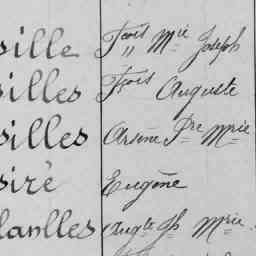 sille Fçois Mie Joseph
silles Fçois Auguste
silles Arsène Pre Mrie
siré Eugène
lanlles Augte Jh Mrie